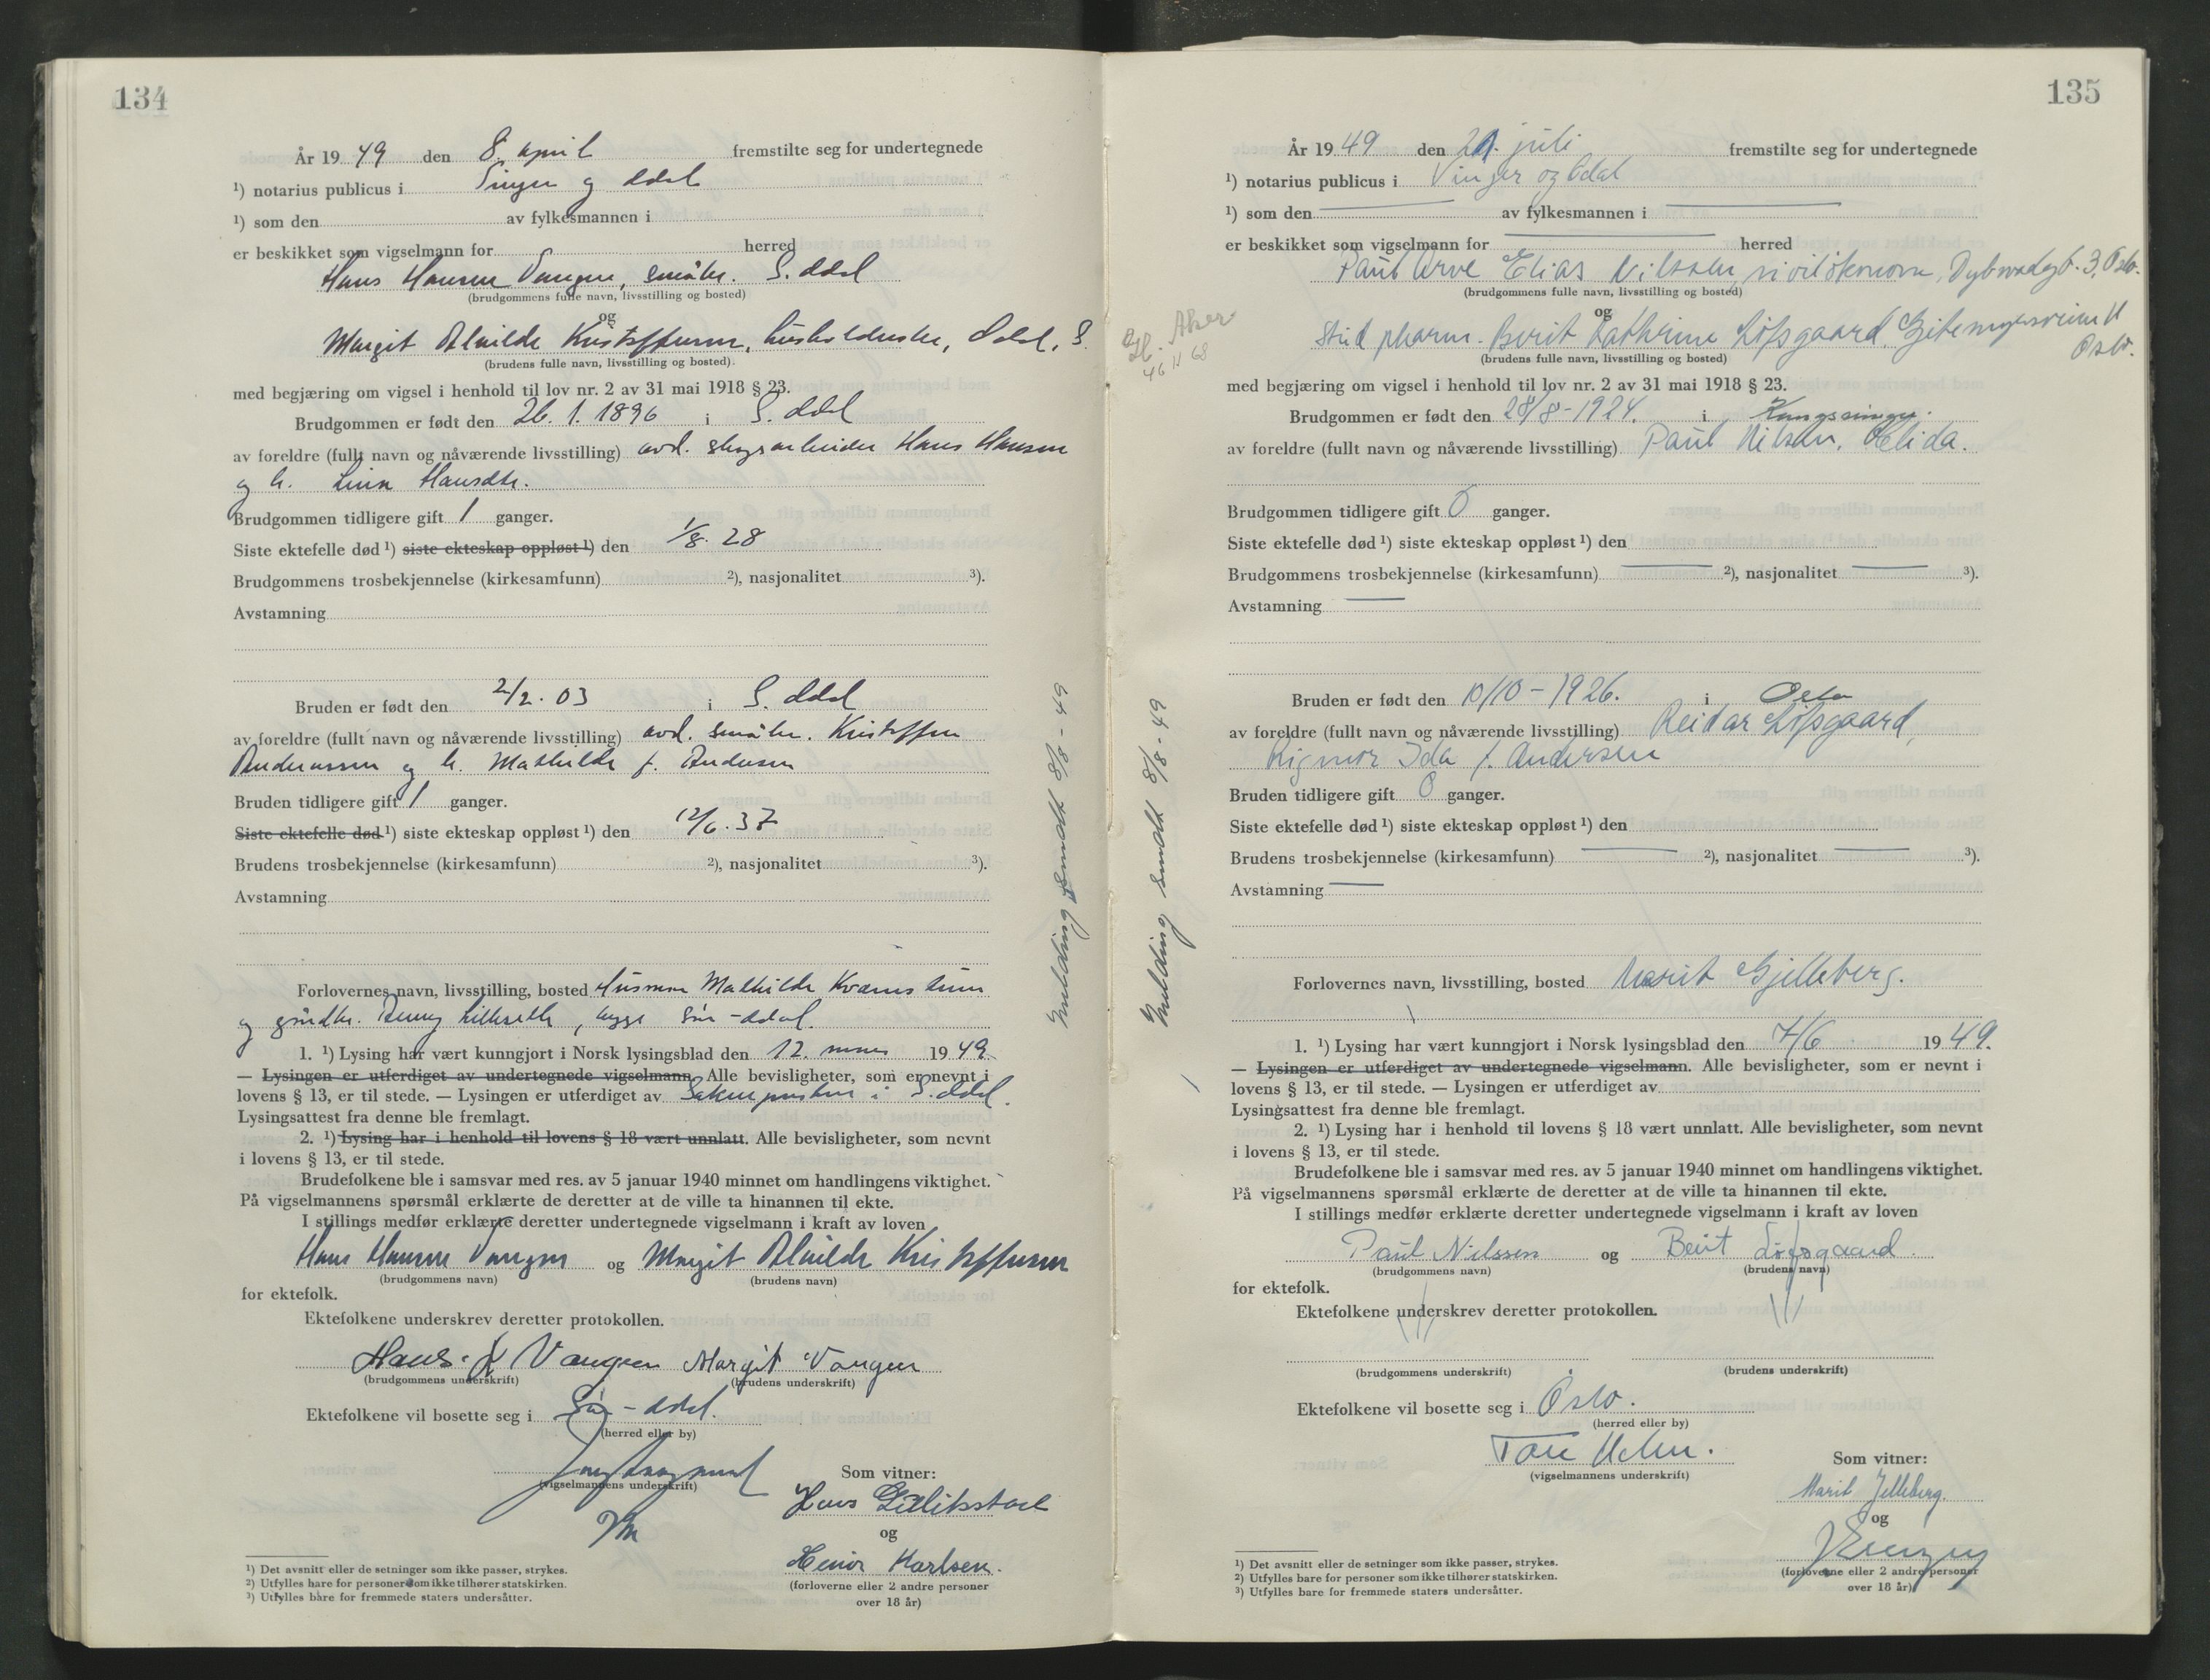 134
År 19 49 den 8. april fremstilte seg for undertegnede
¹) notarius publicus i Vinger og Odal
¹) som den av fylkesmannen i
er beskikket som vigselmann for herred
Hans Hansen Vangen, småbr. S. Odal
(brudgommens fulle navn, livsstilling og bosted)
og
Margit Alvilde Kristoffersen, husholderske, Odal, S.
(brudens fulle navn, livsstilling og bosted).
med begjæring om vigsel i henhold til lov nr. 2 av 31 mai 1918 § 23.
Brudgommen er født den 26. 1. 1896 i S. Odal
av foreldre (fullt navn og nåværende livsstilling) avd. skogsarbeider Hans Hansen
og h. Lina Hansdtr.
Brudgommen tidligere gift 1 ganger.
Siste ektefelle død ¹) siste ekteskap oppløst ¹) den 1/8. 28
Brudgommens trosbekjennelse (kirkesamfunn) ²), nasjonalitet ³).
Avstamning
Bruden er født den 2/2. 03 i S. Odal
av foreldre (fullt navn og nåværende livsstilling) avd. småbr. Kristoffer
Andreassen og h. Mathilde f. Andersen
Bruden tidligere gift 1 ganger.
Siste ektefelle død ¹) siste ekteskap oppløst ¹) den 12/6. 37
Brudens trosbekjennelse (kirkesamfunn) ²), nasjonalitet ³).
Avstamning
Melding sendt 8/8 - 49
Forlovernes navn, livsstilling, bosted Husmor Mathilde
og gårdbr. Sør-Odal.
1. ¹) Lysing har vært kunngjort i Norsk lysingsblad den 12. mars 19 49
— Lysingen er utferdiget av undertegnede vigselmann. Alle bevisligheter, som er nevnt i
lovens § 13, er til stede. — Lysingen er utferdiget av Soknepresten i S. Odal.
Lysingsattest fra denne ble fremlagt.
2. ¹) Lysing har i henhold til lovens § 18 vært unnlatt. Alle bevisligheter, som nevnt
i lovens § 13, er til stede.
Brudefolkene ble i samsvar med res. av 5 januar 1940 minnet om handlingens viktighet.
På vigselmannens spørsmål erklærte de deretter at de ville ta hinannen til ekte.
I stillings medfør erklærte deretter undertegnede vigselmann i kraft av loven
Hans Hansen Vangen og Margit Alvilde Kristoffersen
(brudgommens navn) (brudens navn)
for ektefolk.
Ektefolkene underskrev deretter protokollen.
Hans. H Vangen Margit Vangen
(brudgommens underskrift) (brudens underskrift)
Ektefolkene vil bosette seg i Sør-Odal.
(herred eller by)
(vigselmannens underskrift)
Som vitner:
Hans
og
Karlsen.
(forloverne eller 2 andre personer
over 18 år)
¹) Det avsnitt eller de setninger som ikke passer, strykes.
²) Utfylles bare for personer som ikke tilhører statskirken.
³) Utfylles bare for fremmede staters undersåtter.
135
År 19 49 den juli fremstilte seg for undertegnede
¹) notarius publicus i Vinger og Odal
¹) som den av fylkesmannen i
er beskikket som vigselmann for herred
Paul Arve Elias Nilssen, siviløkonom, 3, Oslo.
(brudgommens fulle navn, livsstilling og bosted)
og
Stud pharm. Berit Kathrine Løfsgaard, 11
Oslo.
(brudens fulle navn, livsstilling og bosted)
Aker
46 11 68
med begjæring om vigsel i henhold til lov nr. 2 av 31 mai 1918 § 23.
Brudgommen er født den 28/8-1924. i Kongsvinger.
av foreldre (fullt navn og nåværende livsstilling) Paul Nilssen, Elida.
Brudgommen tidligere gift 0 ganger.
Siste ektefelle død ¹) siste ekteskap oppløst ¹) den
Brudgommens trosbekjennelse (kirkesamfunn) ²), nasjonalitet ³).
Avstamning
Bruden er født den 10/10-1926. i Oslo
av foreldre (fullt navn og nåværende livsstilling) Reidar Løfsgaard,
Rigmor Ida f. Andersen
Bruden tidligere gift 0 ganger.
Siste ektefelle død ¹) siste ekteskap oppløst ¹) den
Brudens trosbekjennelse (kirkesamfunn) ²), nasjonalitet ³).
Avstamning
Melding sendt 8/8 - 49
Forlovernes navn, livsstilling, bosted Marit Gjelleberg.
1. ¹) Lysing har vært kunngjort i Norsk lysingsblad den 7/6 19 49.
— Lysingen er utferdiget av undertegnede vigselmann. Alle bevisligheter, som er nevnt i
lovens § 13, er til stede. — Lysingen er utferdiget av
Lysingsattest fra denne ble fremlagt.
2. ¹) Lysing har i henhold til lovens § 18 vært unnlatt. Alle bevisligheter, som nevnt
i lovens § 13, er til stede.
Brudefolkene ble i samsvar med res. av 5 januar 1940 minnet om handlingens viktighet.
På vigselmannens spørsmål erklærte de deretter at de ville ta hinannen til ekte.
I stillings medfør erklærte deretter undertegnede vigselmann i kraft av loven
Paul Nilssen og Berit Løfsgaard.
(brudgommens navn) (brudens navn)
for ektefolk.
Ektefolkene underskrev deretter protokollen.
(brudgommens underskrift) (brudens underskrift)
Ektefolkene vil bosette seg i Oslo.
(herred eller by)
Tore
(vigselmannens underskrift)
Som vitner:
Marit Jelleberg.
og
(forloverne eller 2 andre personer
over 18 år)
¹) Det avsnitt eller de setninger som ikke passer, strykes.
²) Utfylles bare for personer som ikke tilhører statskirken.
³) Utfylles bare for fremmede staters undersåtter.